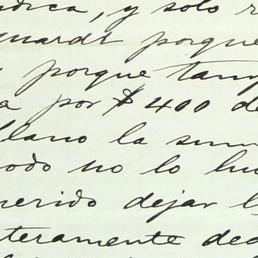 ndica, y solo r
uardé porque
, porque tam
a por $400 de
llano la sum
odo no lo hu
uerido dejar l
teramente ded